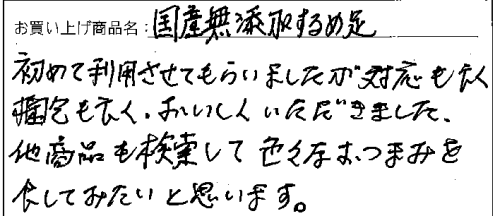 お買い上げ商品名：国産無添加するめ足
初めて利用させてもらいましたが対応も良く
梱包も良く、おいしくいただきました、
他商品も検索して色々なおつまみを
食してみたいと思います。